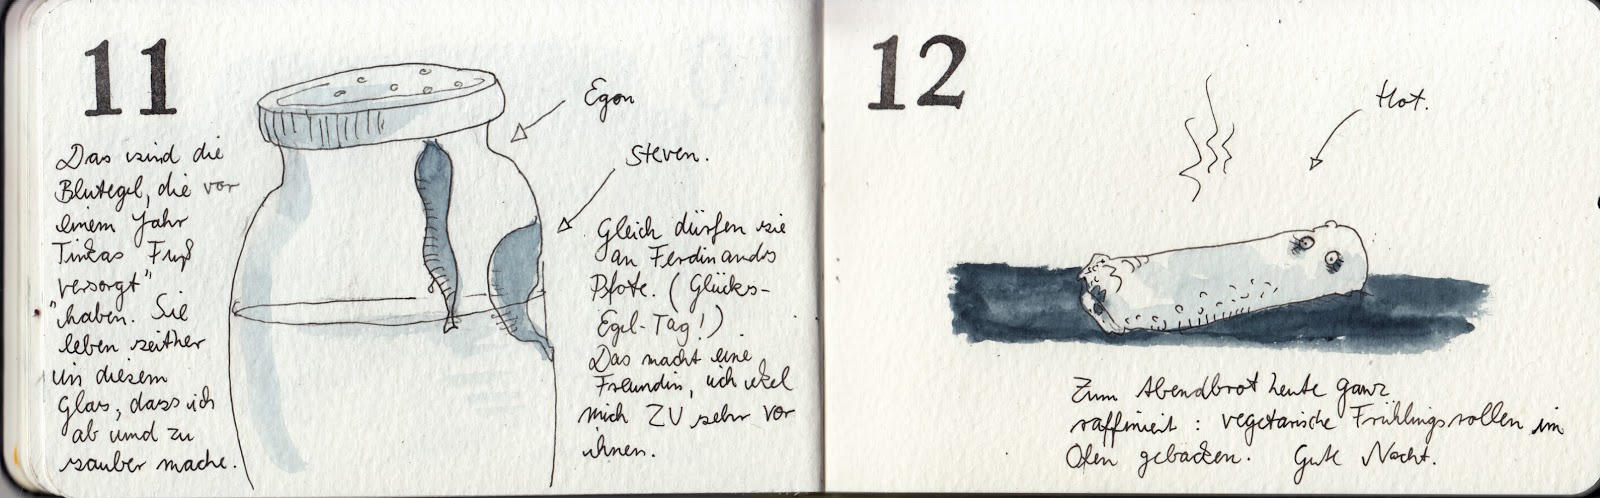 11
Das sind die
Blutegel, die vor
einem Jahr
Tinkas Fuß
"versorgt"
haben. Sie
leben seither
in diesem
Glas, dass ich
ab und zu
sauber mache.
Egon
Steven.
Gleich dürfen sie
an Ferdinands
Pfote. (Glücks-
Egel-Tag!)
Das macht eine
Freundin, ich ekel
mich ZU sehr vor
ihnen.
12
Hot.
Zum Abendbrot heute ganz
raffiniert: vegetarische Frühlingsrollen im
Ofen gebacken. Gute Nacht.